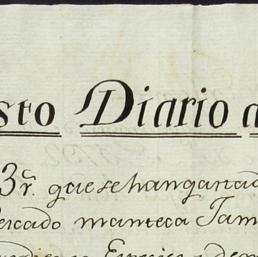 sto Diario a
3r. que se han ganad
ercado manteca Jam